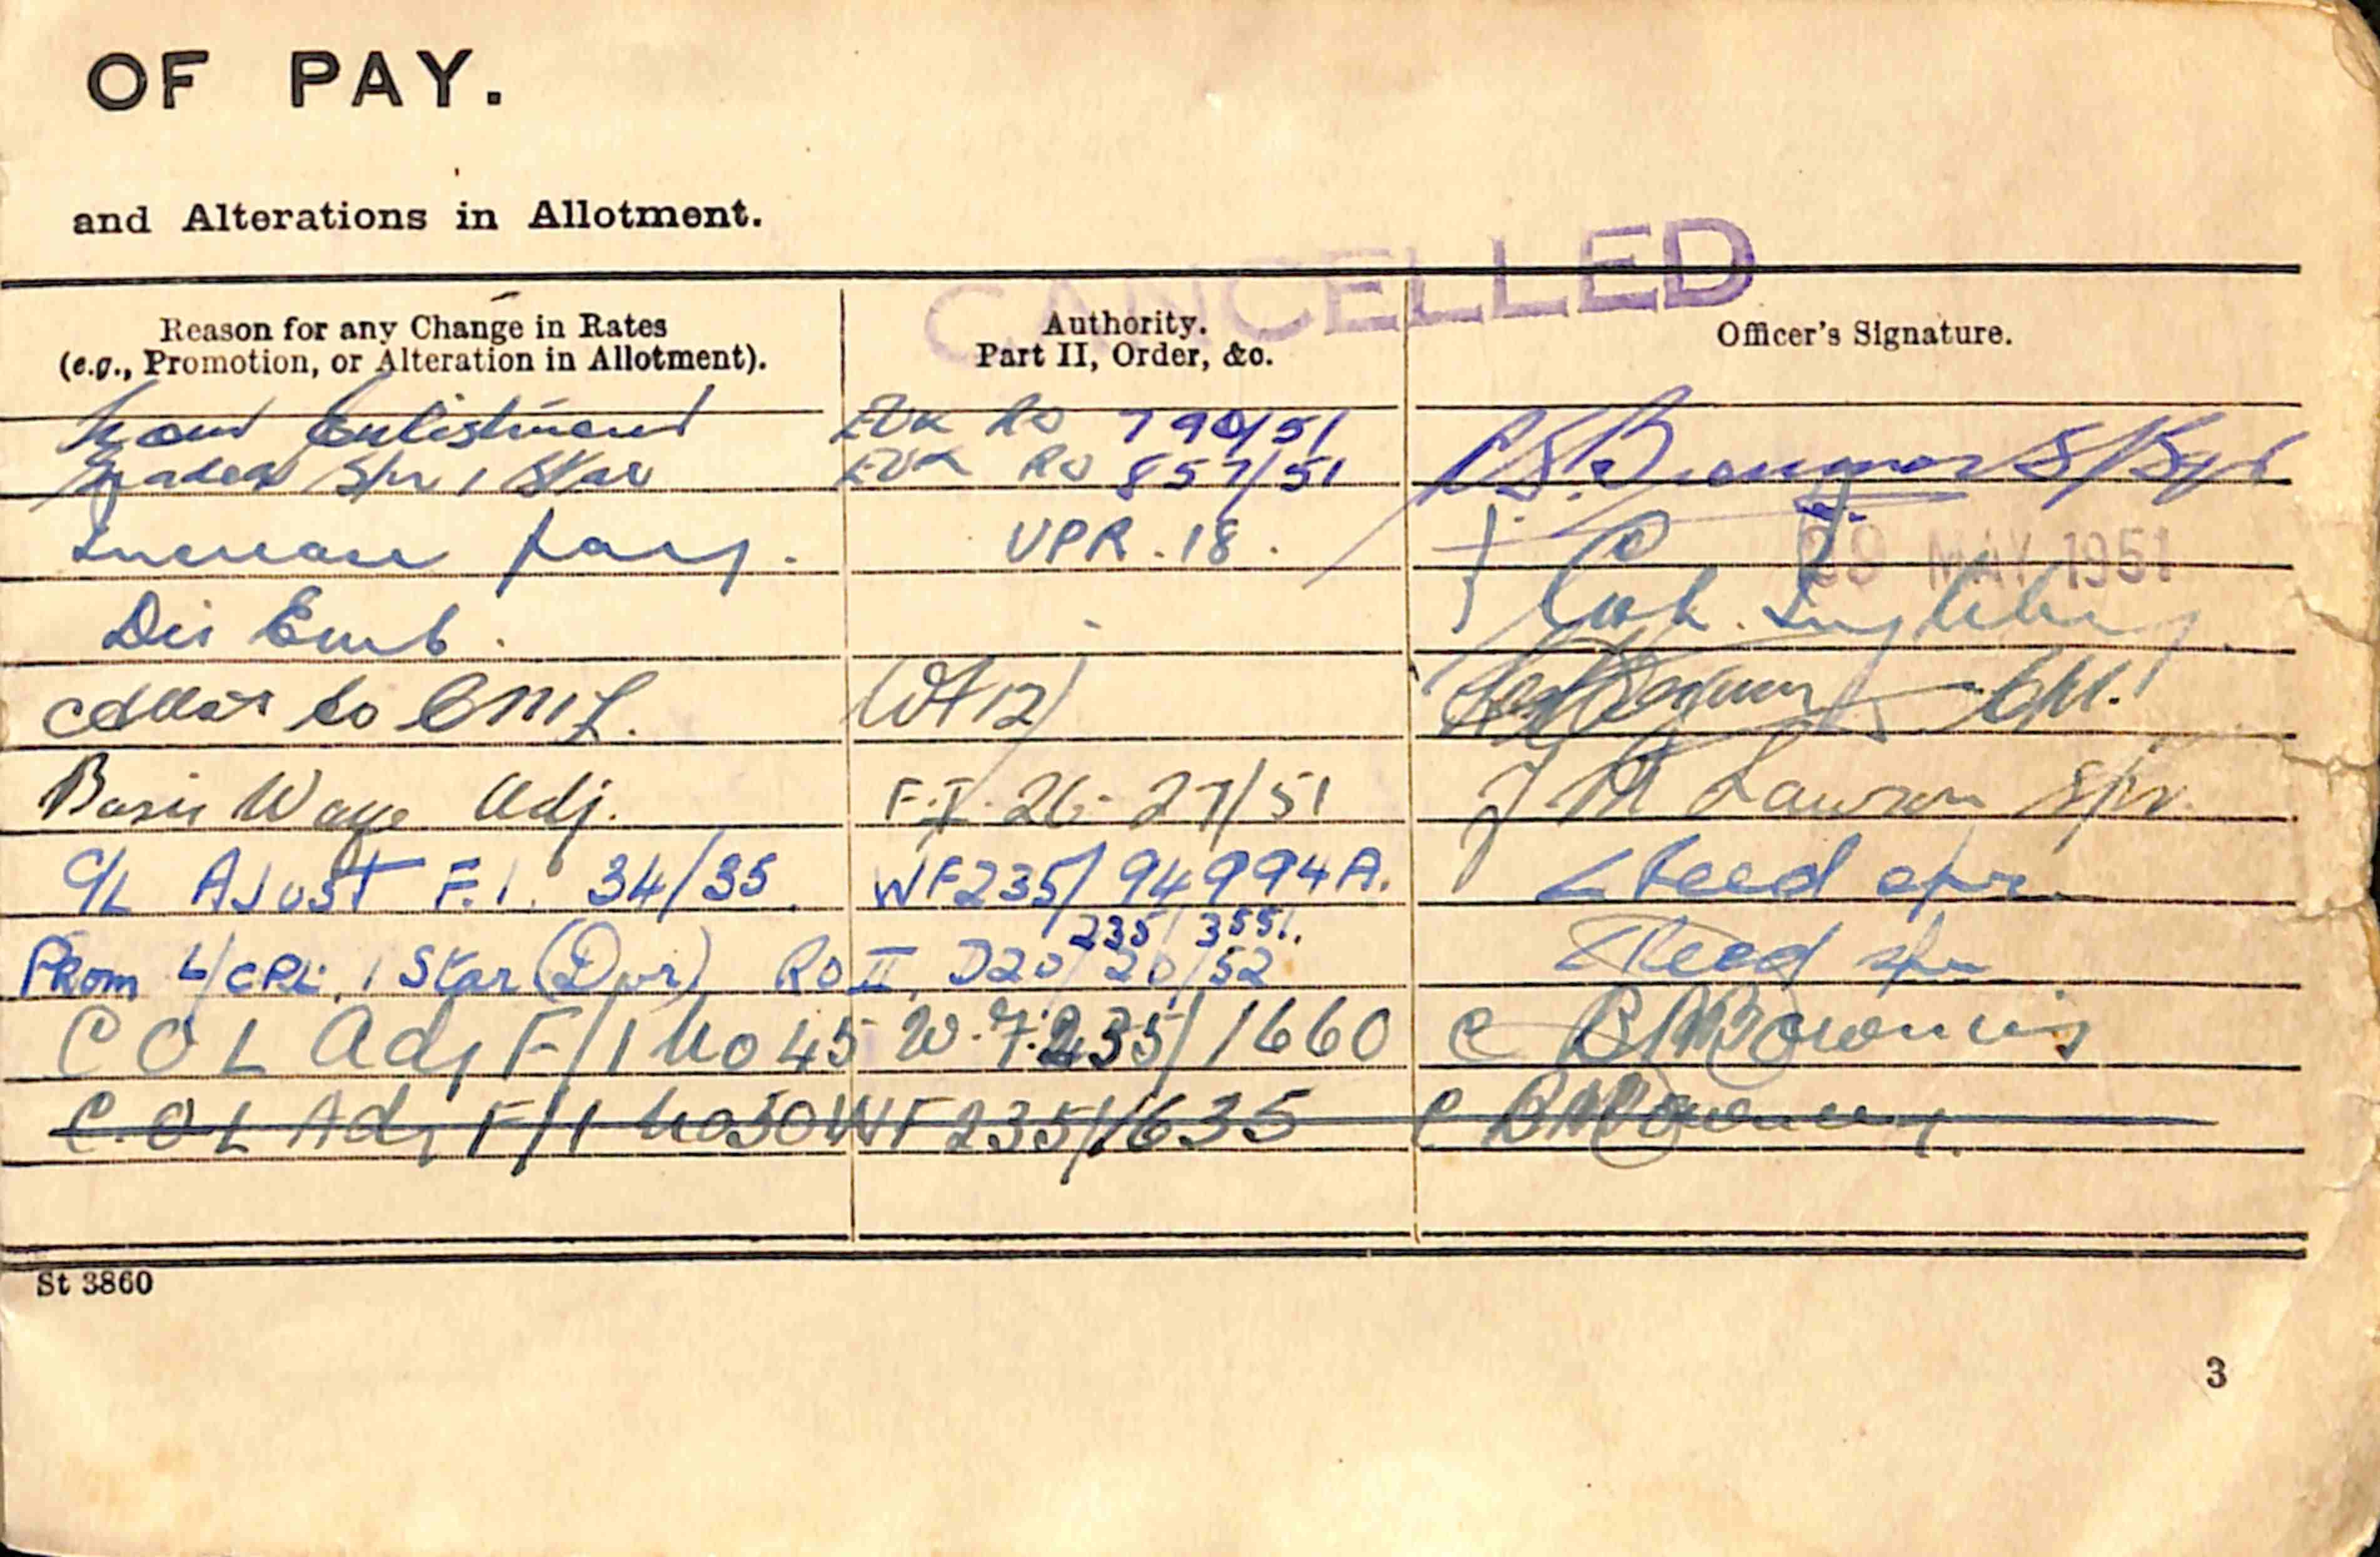 OF PAY.
and Alterations in Allotment.
CANCELLED
Reason for any Change in Rates
(e.g., Promotion, or Alteration in Allotment).
Authority.
Part II, Order, &c.
Officer's Signature.
Enlistment RO 790/51
Graded Spr 1 Star RO 857/51 S/Sgt
Increase pay. UPR.18.
29 MAY 1951
Dis Emb.
to
Basic Wage Adj. F.I. 26-27/51 J M Lawson Spr.
C/L AJUST F.I. 34/35. WF235/94994A. Steed spr.
235/3551.
PRom L/CPL. 1 Star (Dvr) RO II. D20/20/52 Steed spr
C O L Adj F/1 No 45 W.F.235/1660
C.O L Adj F/1 No50 WF235/1635
St 3860
3